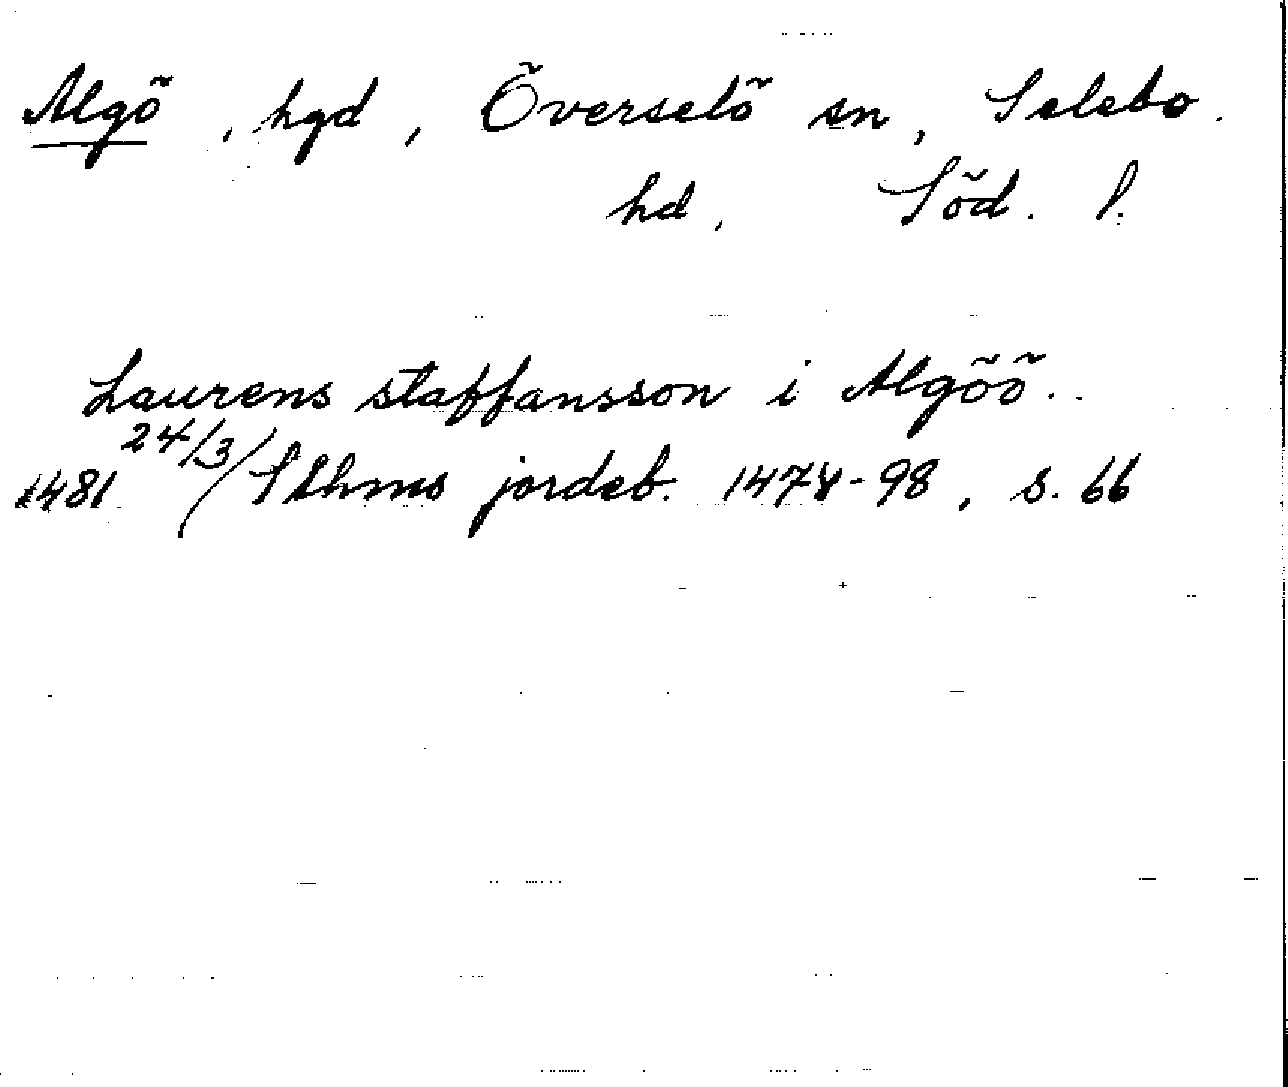 Algö, hgd, Överselö sn, Selebo
hd, Söd. l.
Laurens staffansson i Algöö.
1481 24/3/ Sthms jordeb. 1474-98, s. 66